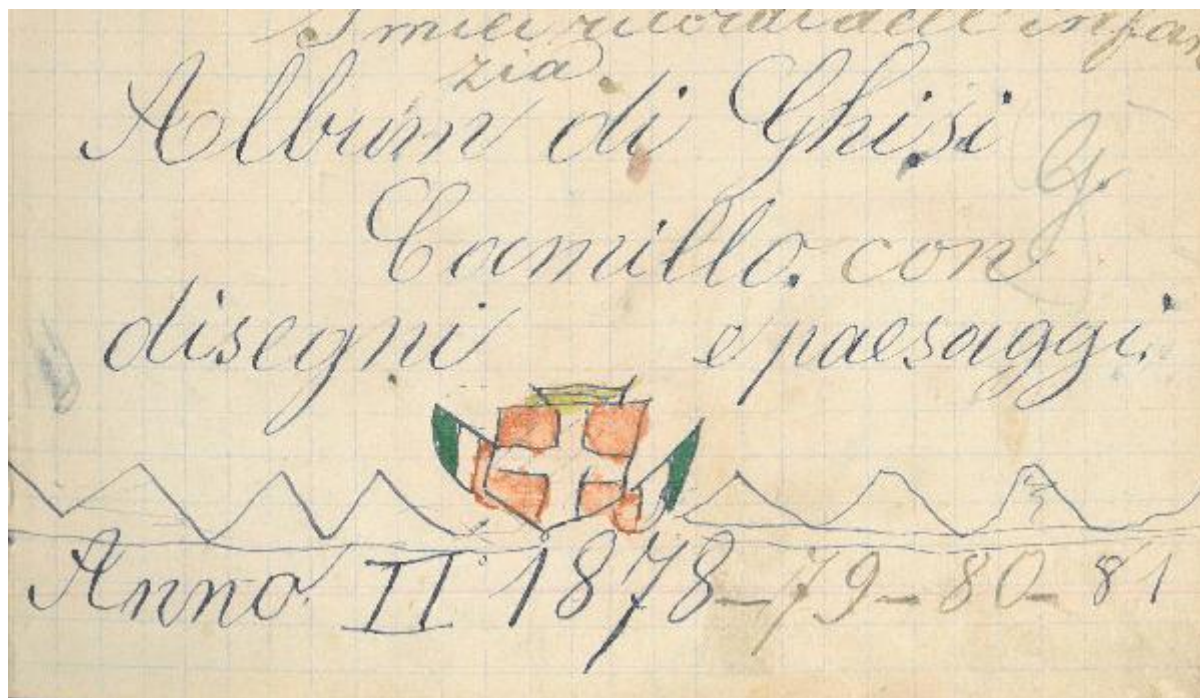 I miei ricordi dell'infan
zia.
Album di Ghisi
G.
Camillo. con
disegni e paesaggi.
Anno II° 1878-79-80-81